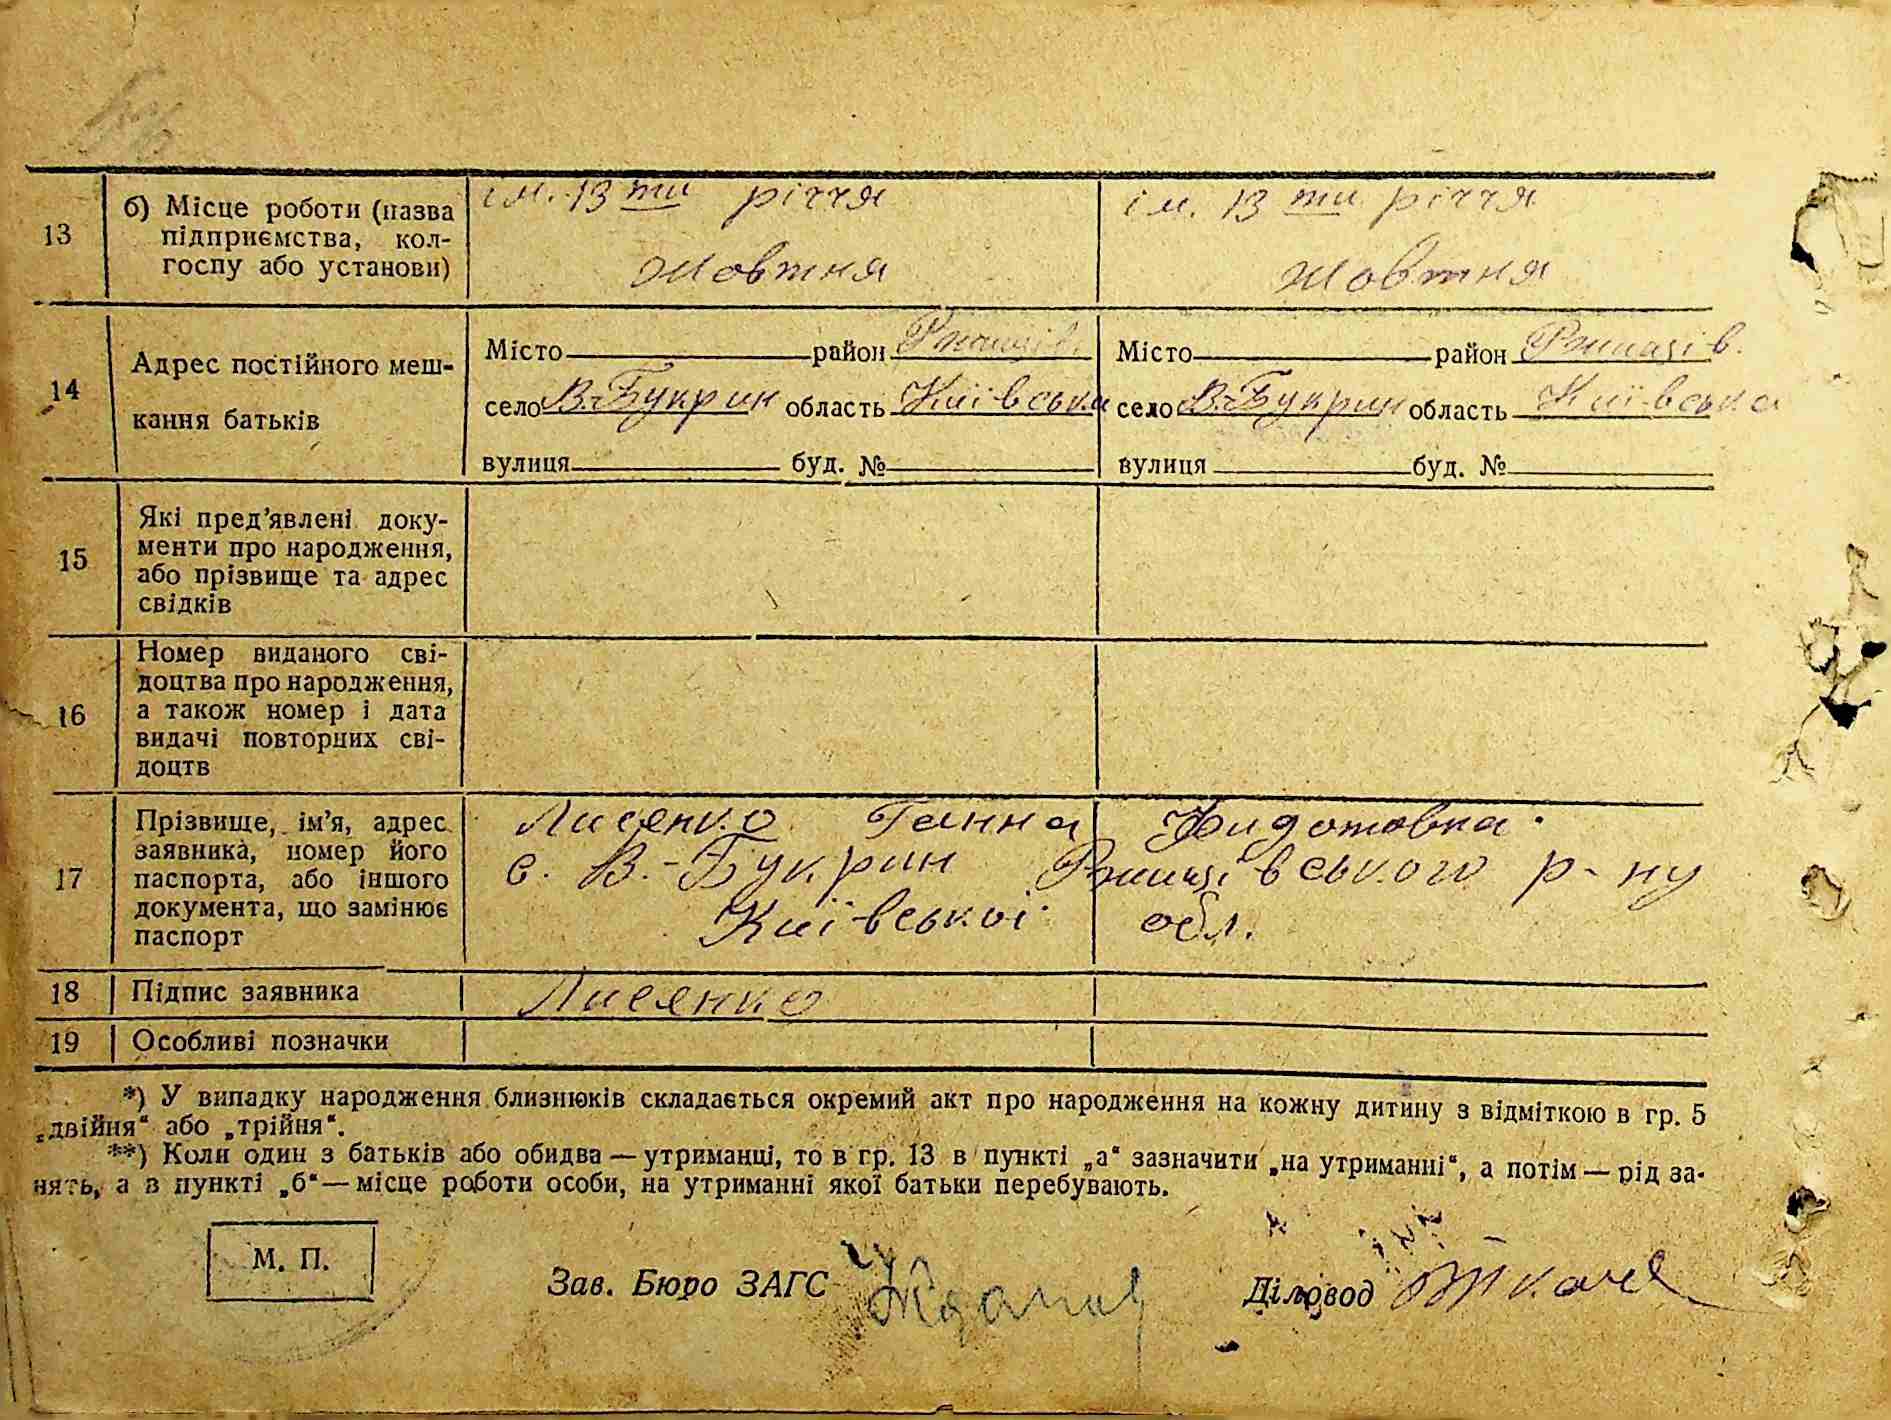 13
б) Місце роботи (назва підприємства, колгоспу або установи)
ім. 13 ти річчя
Жовтня
ім. 13 ти річчя
Жовтня
14
Адрес постійного мешкання батьків
Місто район Ржищів.
село В.-Букрин область Київська
вулиця буд. №
Місто район Ржищів.
село В.-Букрин область Київська
вулиця буд. №
15
Які пред'явлені документи про народження, або прізвище та адрес свідків
16
Номер виданого свідоцтва про народження, а також номер і дата видачі повторних свідоцтв
17
Прізвище, ім'я, адрес заявника, номер його паспорта, або іншого документа, що замінює паспорт
Лисянко Ганна
с. В.-Букрин Ржищівського р-ну
Київської обл.
18
Підпис заявника
Лисянко
19
Особливі позначки
*) У випадку народження близнюків складається окремий акт про народження на кожну дитину з відміткою в гр. 5
„двійня“ або „трійня“.
**) Коли один з батьків або обидва — утриманці, то в гр. 13 в пункті „а“ зазначити „на утриманні“, а потім — рід за-
нять, а в пункті „б“ — місце роботи особи, на утриманні якої батьки перебувають.
М. П.
Зав. Бюро ЗАГС
Діловод Ткаче